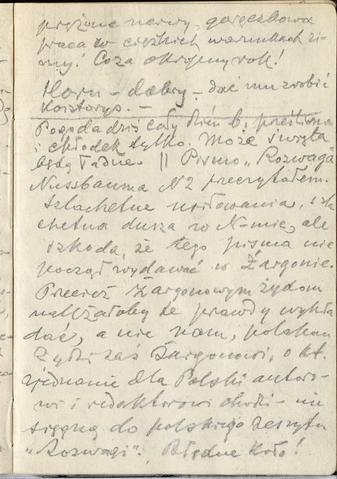 prężone nerwy, gorączkowa
praca w ciężkich warunkach zi-
my! Co za okropny rok!
Horn – dobry – dać mu zrobić
kosztorys. –
Pogoda dziś cały dzień b. prześliczna
i chłodek tylko. Może święta
będą ładne. || Pismo „Rozwaga”
Nussbauma N2 przeczytałem.
Szlachetne usiłowania, szla
chetna dusza w N-mie, ale
szkoda, że tego pisma nie
począł wydawać w Żargonie.
Przecież Żargonowym żydom
należałoby te prawdy wykła
dać, a nie nam, polakom
Żydzi zaś Żargonowi, o kt.
zjednanie dla Polski autoro-
wi i redaktorowi chodzi – nie
sięgną do polskiego zeszytu
„Rozwagi”. Błędne koło!